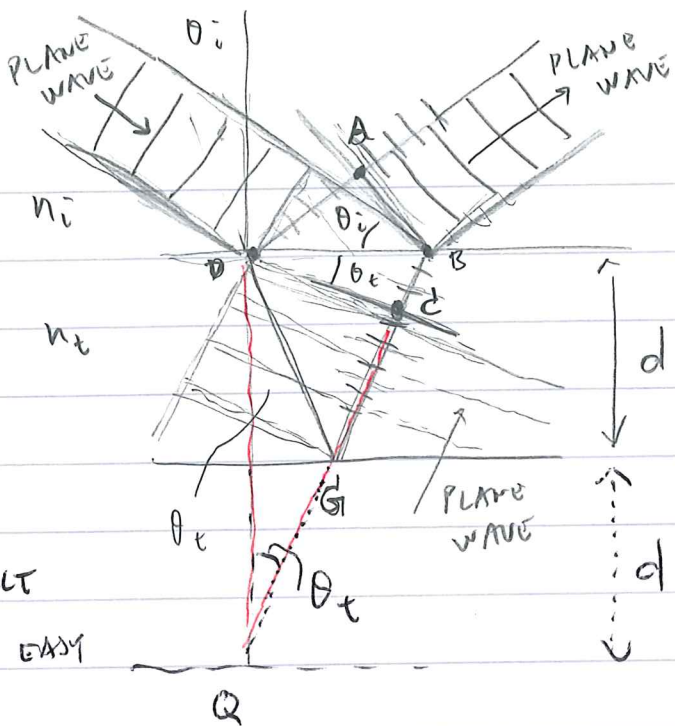 θi
PLANE
WAVE
PLANE
WAVE
A
ni
θi
D
B
θt
C
nt
d
G
PLANE
WAVE
θt
θt
d
LT
EASY
Q